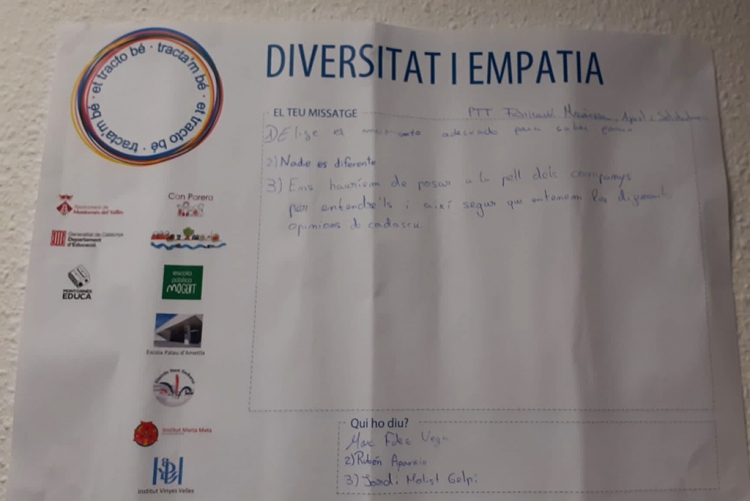 et tracto bé · tracta'm bé · et tracto bé · tracta'm bé ·
DIVERSITAT I EMPATIA
EL TEU MISSATGE
PTT
1) Elige el adecuado para
2) Nade es diferente
3) Ens hauríem de posar a la pell dels companys
per entendre'ls i així segur que entenem les diferents
opinions de cadascú
Ajuntament de
Montornès del Vallès
Can Parera
Generalitat de Catalunya
Departament
d'Educació
MONTORNÈS
EDUCA
escola
pública
MOGENT
Escola Palau d'Ametlla
Institut Marta Mata
Institut Vinyes Velles
Qui ho diu?
Marc Fdez Vega
2) Rubén Aparicio
3) Jordi Molist Gelpi